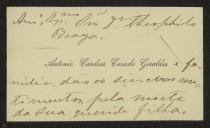 Am.º Ex.mo Sr. Dr. Theophilo
Braga.
Antonio Cardoso Casado Geraldes e fa-
milia, dão os sinceros sen-
timentos, pela morte
da sua querida filha.